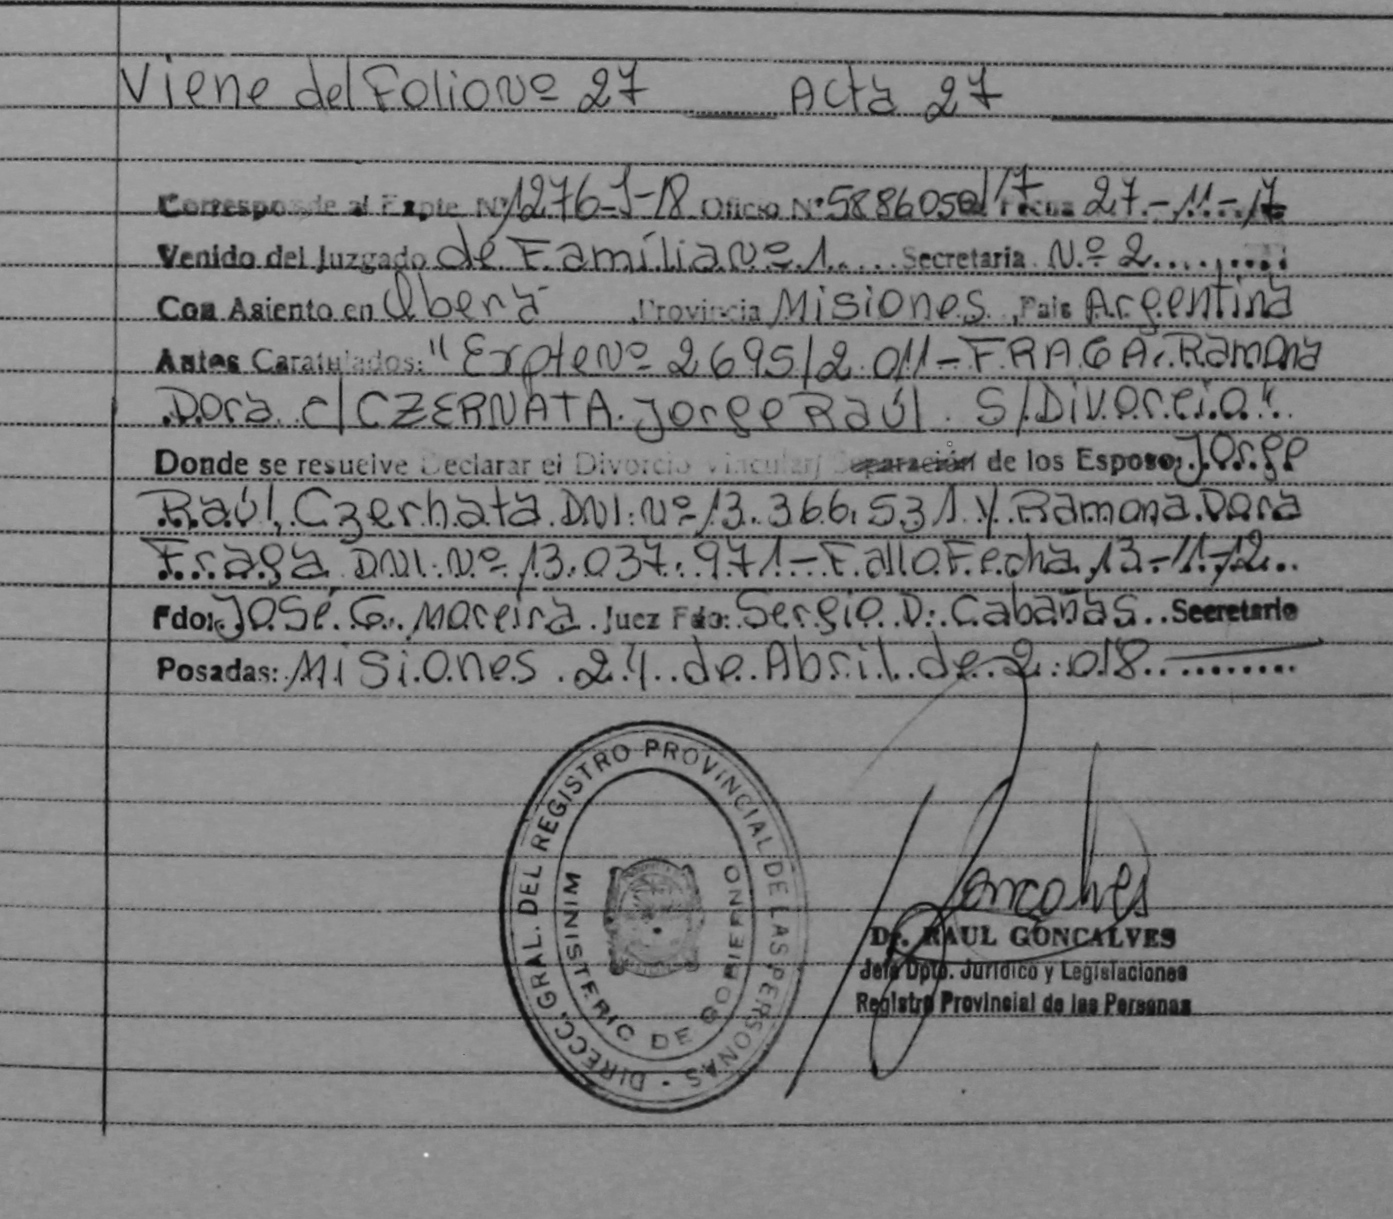 Viene del Folio Nº 27 Acta 27
Corresponde al Expte Nº 1276-J-18 Oficio Nº 588605 Fecha 27.-11-.17
Venido del Juzgado de Família Nº 1.... Secretaria Nº 2........
Con Asiento en Oberá Provincia Misiones, Pais Argentina
Autos Caratulados: "Expte Nº 2695/2.011-FRAGA, Ramona
Dora c/CZERNATA Jorge Raúl S/Divorcio".
Donde se resuelve Declarar el Divorcio Vincular/ Separación de los Esposo: Jorge
Raúl, Czernata DNI. Nº 13.366.531 y Ramona Dora
Fraga DNI. Nº 13.037.971-Fallo Fecha 13-11-12..
Fdo: José G. Moreira. Juez Fdo: Sergio D. Cabañas.. Secretario
Posadas: Misiones 24 de Abril de 2.018.........
DIRECC. GRAL. DEL REGISTRO PROVINCIAL DE LAS PERSONAS -
MINISTERIO DE GOBIERNO
Goncalves
Dr. RAUL GONCALVES
Jefe Dpto. Jurídico y Legislaciones
Registro Provincial de las Personas